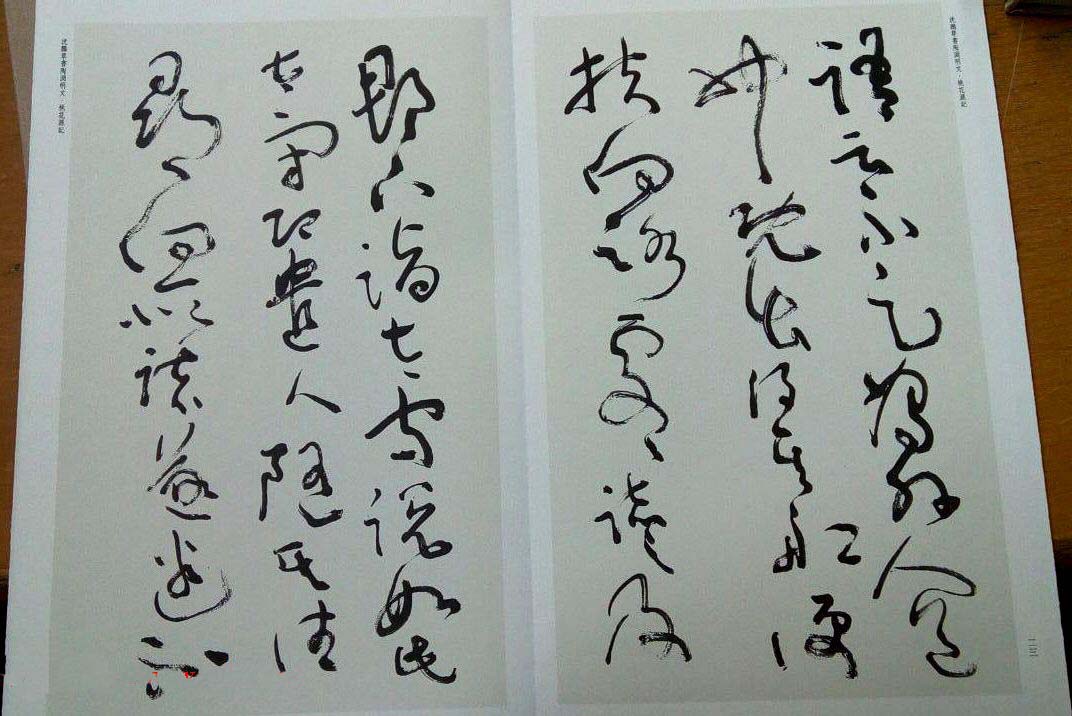 沈鵬草書陶淵明文·桃花源記
語言不足為外人道
也既出得其船便
扶向路處〻誌之及
二三
郡下詣太守說如此
太守即遣人隨其往
尋向所誌遂迷不
沈鵬草書陶淵明文·桃花源記